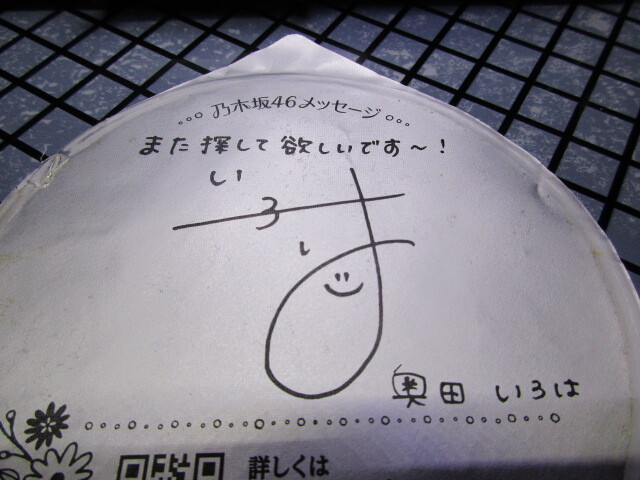 乃木坂46メッセージ
また探して欲しいです〜!
いろは
奥田 いろは
詳しくは